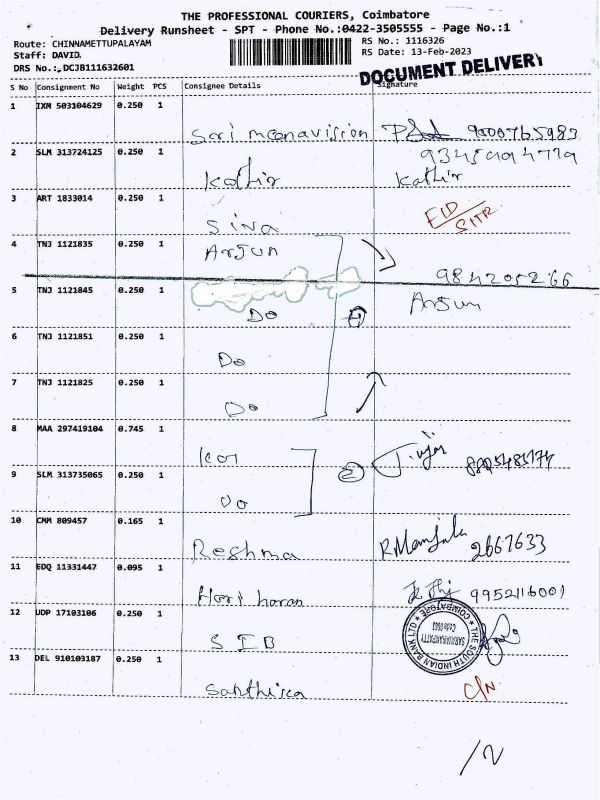 THE PROFESSIONAL COURIERS, Coimbatore
Delivery Runsheet - SPT - Phone No.:0422-3505555 - Page No.:1
Route: CHINNAMETTUPALAYAM
Staff: DAVID.
DRS No.:.DCJB111632601
RS No.: 1116326
RS Date: 13-Feb-2023
DOCUMENT DELIVERY
S No Consignment No Weight PCS Consignee Details Signature
1 IXM 503104629 0.250 1
Sri meenavision 9000765983
2 SLM 313724125 0.250 1 9345994779
Kathir Kathir
3 ART 1833014 0.250 1
Siva
4 TNJ 1121835 0.250 1 Arjun
9842052266
5 TNJ 1121845 0.250 1 Arjun
Do 4
6 TNJ 1121851 0.250 1
Do
7 TNJ 1121825 0.250 1
Do
8 MAA 297419104 0.745 1
2
9 SLM 313735065 0.250 1
Do
10 CMM 809457 0.165 1
Reshma R.Manjula 2667633
11 EDQ 11331447 0.095 1
Hari haran 9952116001
12 UDP 17103106 0.250 1
SIB
THE SOUTH INDIAN BANK LTD
COIMBATORE
13 DEL 910103187 0.250 1
C/N
/2